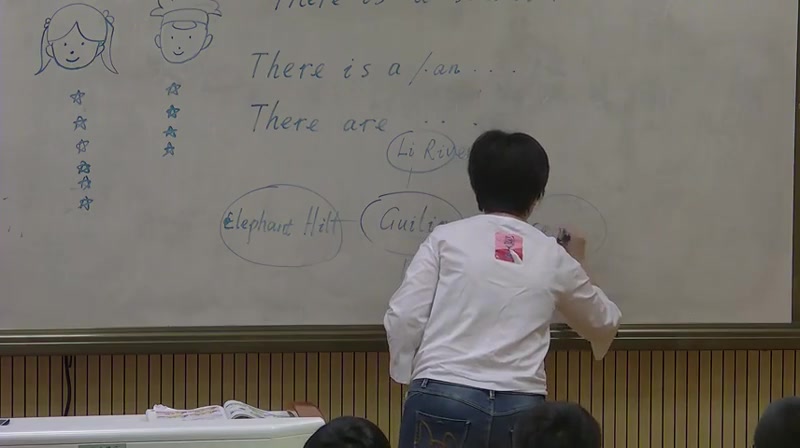 There is a
There is a /. an . . .
There are . . .
Li River
Elephant Hill
Guilin